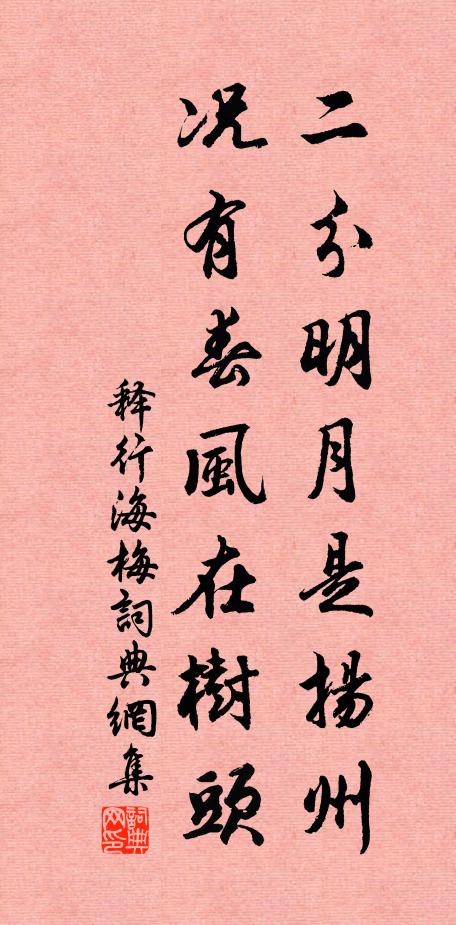 二分明月是揚州
况有春風在樹頭
释行海梅詞典網集
詞典网印